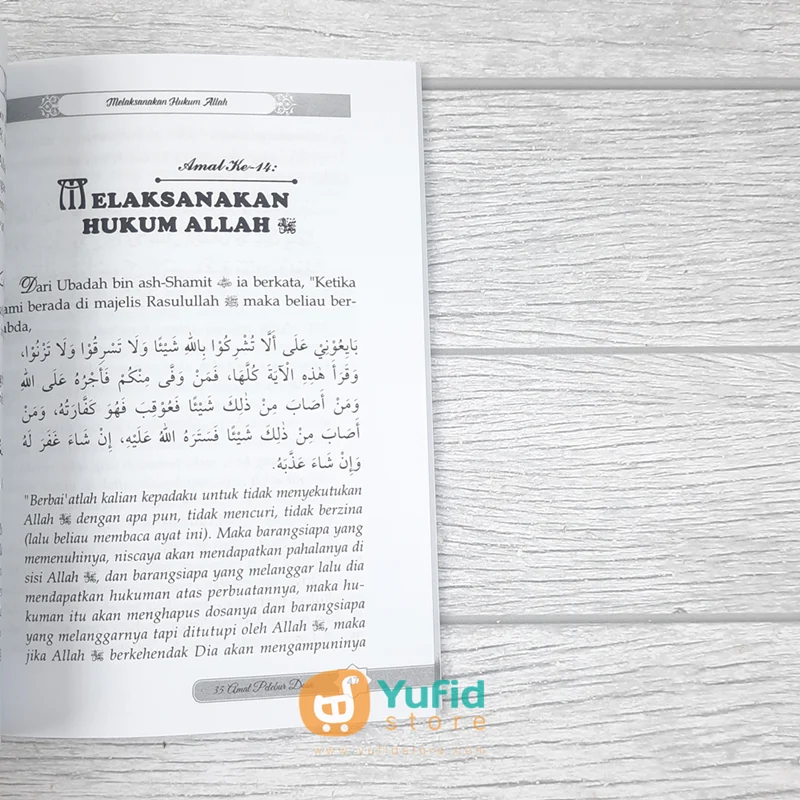 Melaksanakan Hukum Allah
Amal Ke-14:
MELAKSANAKAN
HUKUM ALLAH ﷻ
Dari Ubadah bin ash-Shamit ia berkata, "Ketika
ami berada di majelis Rasulullah ﷺ maka beliau ber-
abda,
بَايِعُوْنِيْ عَلَى أَلَّا تُشْرِكُوْا بِاللهِ شَيْئًا وَلَا تَسْرِقُوْا وَلَا تَزْنُوْا،
وَقَرَأَ هٰذِهِ الْآيَةَ كُلَّهَا، فَمَنْ وَفَّى مِنْكُمْ فَأَجْرُهُ عَلَى اللهِ
وَمَنْ أَصَابَ مِنْ ذٰلِكَ شَيْئًا فَعُوْقِبَ فَهُوَ كَفَّارَتُهُ، وَمَنْ
أَصَابَ مِنْ ذٰلِكَ شَيْئًا فَسَتَرَهُ اللهُ عَلَيْهِ، إِنْ شَاءَ غَفَرَ لَهُ
وَإِنْ شَاءَ عَذَّبَهُ.
"Berbai'atlah kalian kepadaku untuk tidak menyekutukan
Allah ﷻ dengan apa pun, tidak mencuri, tidak berzina
(lalu beliau membaca ayat ini). Maka barangsiapa yang
memenuhinya, niscaya akan mendapatkan pahalanya di
sisi Allah ﷻ, dan barangsiapa yang melanggar lalu dia
mendapatkan hukuman atas perbuatannya, maka hu-
kuman itu akan menghapus dosanya dan barangsiapa
yang melanggarnya tapi ditutupi oleh Allah ﷻ, maka
jika Allah ﷻ berkehendak Dia akan mengampuninya
35 Amal Pelebur Dosa
Yufid
store
www.YufidStore.com